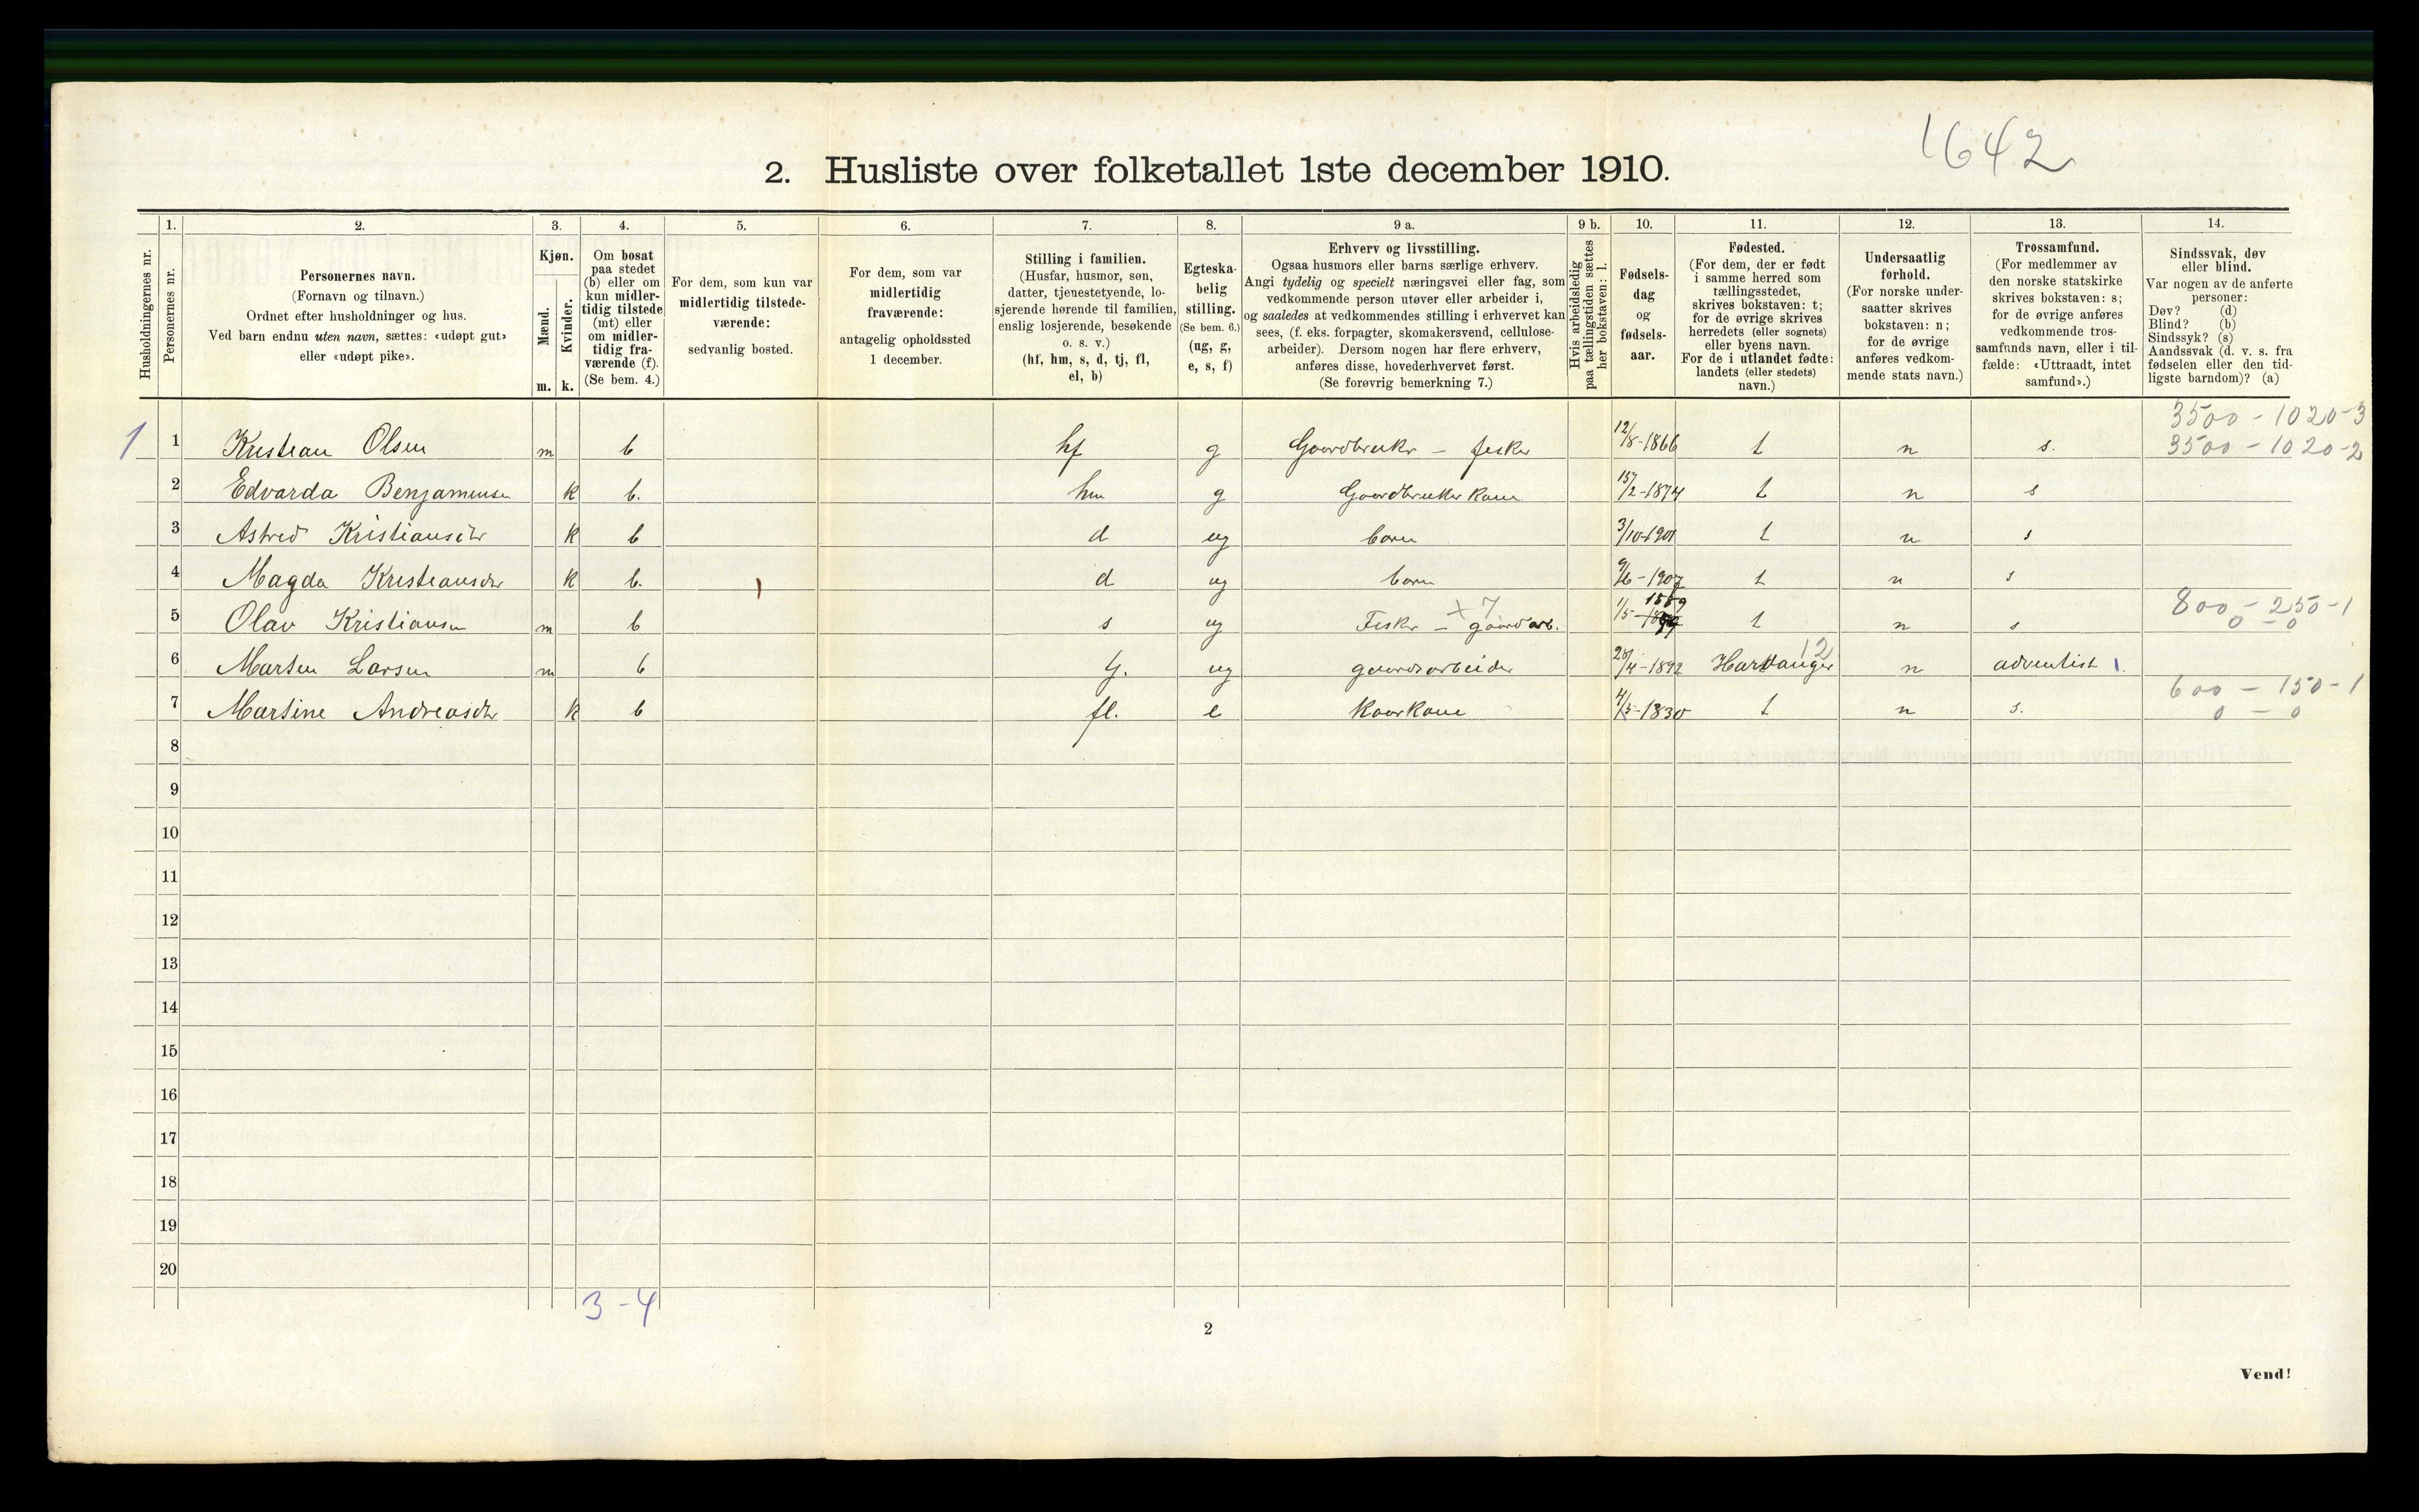 1642
2. Husliste over folketallet 1ste december 1910.
1. 2. 3. 4. 5. 6. 7. 8. 9 a. 9 b. 10. 11. 12. 13. 14.
Husholdningernes nr.
Personernes nr.
Personernes navn.
(Fornavn og tilnavn.)
Ordnet efter husholdninger og hus.
Ved barn endnu uten navn, sættes: «udøpt gut»
eller «udøpt pike».
Kjøn.
Mænd.
Kvinder.
m. k.
Om bosat
paa stedet
(b) eller om
kun midler-
tidig tilstede
(mt) eller
om midler-
tidig fra-
værende (f).
(Se bem. 4.)
For dem, som kun var
midlertidig tilstede-
værende:
sedvanlig bosted.
For dem, som var
midlertidig
fraværende:
antagelig opholdssted
1 december.
Stilling i familien.
(Husfar, husmor, søn,
datter, tjenestetyende, lo-
sjerende hørende til familien,
enslig losjerende, besøkende
o. s. v.)
(hf, hm, s, d, tj, fl,
el, b)
Egteska-
belig
stilling.
(Se bem. 6.)
(ug, g,
e, s, f)
Erhverv og livsstilling.
Ogsaa husmors eller barns særlige erhverv.
Angi tydelig og specielt næringsvei eller fag, som
vedkommende person utøver eller arbeider i,
og saaledes at vedkommendes stilling i erhvervet kan
sees, (f. eks. forpagter, skomakersvend, cellulose-
arbeider). Dersom nogen har flere erhverv,
anføres disse, hovederhvervet først.
(Se forøvrig bemerkning 7.)
Hvis arbeidsledig
paa tællingstiden sættes
her bokstaven: l.
Fødsels-
dag
og
fødsels-
aar.
Fødested.
(For dem, der er født
i samme herred som
tællingsstedet,
skrives bokstaven: t;
for de øvrige skrives
herredets (eller sognets)
eller byens navn.
For de i utlandet fødte:
landets (eller stedets)
navn.)
Undersaatlig
forhold.
(For norske under-
saatter skrives
bokstaven: n;
for de øvrige
anføres vedkom-
mende stats navn.)
Trossamfund.
(For medlemmer av
den norske statskirke
skrives bokstaven: s;
for de øvrige anføres
vedkommende tros-
samfunds navn, eller i til-
fælde: «Uttraadt, intet
samfund».)
Sindssvak, døv
eller blind.
Var nogen av de anførte
personer:
Døv? (d)
Blind? (b)
Sindssyk? (s)
Aandssvak (d. v. s. fra
fødselen eller den tid-
ligste barndom)? (a)
3500 - 1020-3
1 1 Kristian Olsen m b hf g Gaardbruker - fisker 12/8-1866 t n s. 3500 - 1020-2
2 Edvarda Benjaminse k b. hm g Gaardbruker kone 15/2-1874 t n s
3 Astrid Kristiansdtr k b d ug barn 3/10-1901 t n s
4 Magda Kristiansdtr k b. d ug barn 9/6-1907 t n s
1889 800 - 250-1
5 Olav Kristiansen m b s ug Fisker - gaardarb. x7 1/5- t n s 0 - 0
6 Martin Larsen m b tj. ug gaardsarbeider 28/4-1892 Hardanger 12 n adventist 1.
600 - 150-1
7 Martine Andreasdtr k b fl. e Kaarkone 4/5-1830 t n s. 0 - 0
8
9
10
11
12
13
14
15
16
17
18
19
20
3-4
2
Vend!